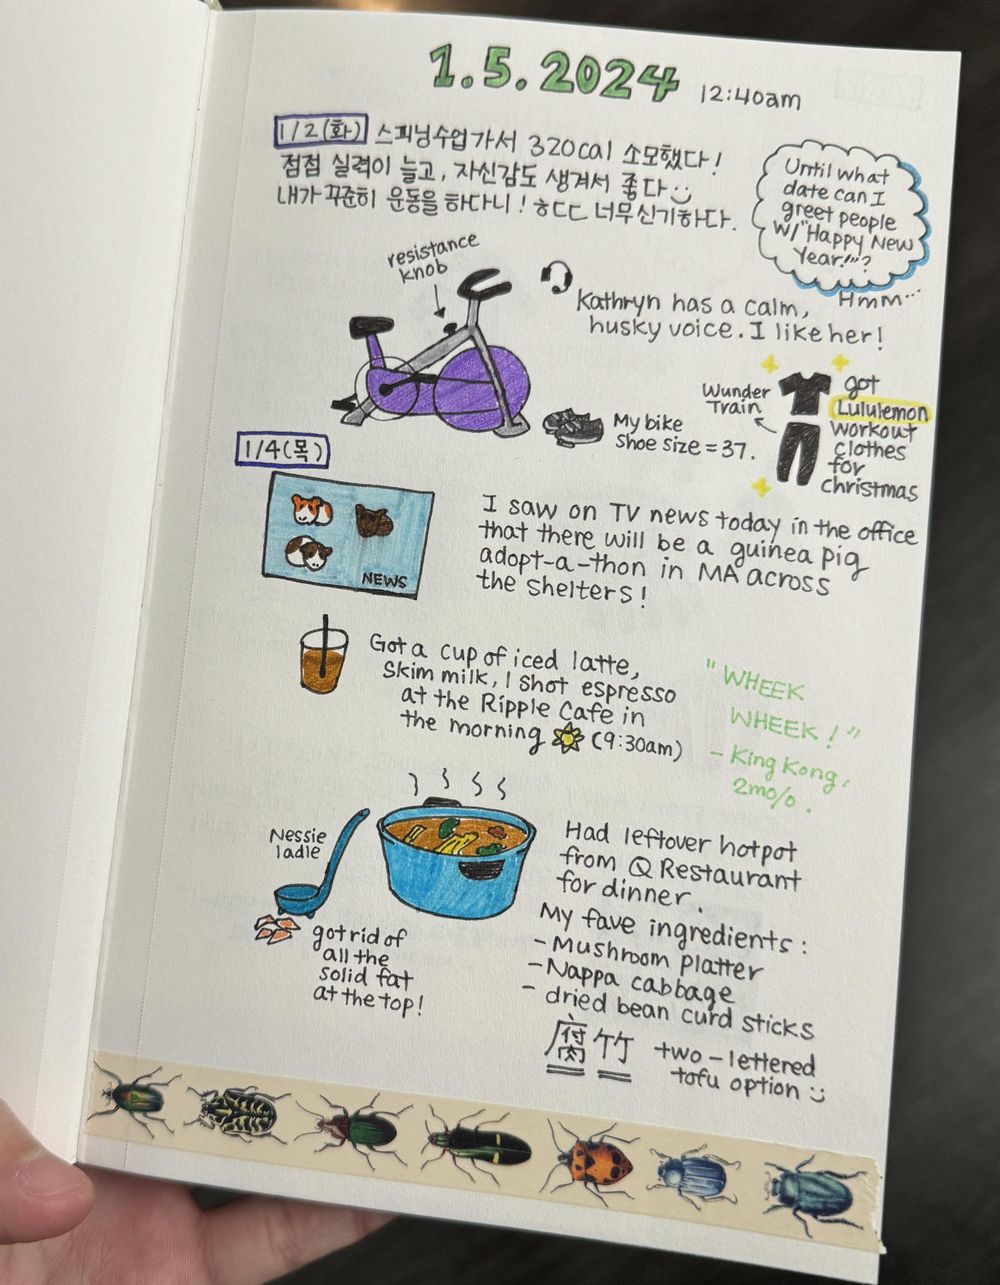 1.5.2024 12:40am
1/2(화) 스피닝수업가서 320cal 소모했다!
점점 실력이 늘고, 자신감도 생겨서 좋다
내가 꾸준히 운동을 하다니! ㅎㄷㄷ 너무신기하다.
Until what
date can I
greet people
w/"Happy New
Year!"?
Hmm...
resistance
knob
Kathryn has a calm,
husky voice. I like her!
Wunder
Train
got
Lululemon
workout
clothes
for
christmas
My bike
shoe size = 37.
1/4(목)
NEWS
I saw on TV news today in the office
that there will be a guinea pig
adopt-a-thon in MA across
the shelters!
Got a cup of iced latte,
skim milk, 1 shot espresso
at the Ripple Cafe in
the morning (9:30am)
"WHEEK
WHEEK!"
- King Kong,
2m/o.
Nessie
ladle
got rid of
all the
solid fat
at the top!
Had leftover hotpot
from Q Restaurant
for dinner.
My fave ingredients:
- Mushroom platter
- Nappa cabbage
- dried bean curd sticks
腐竹 two-lettered
tofu option